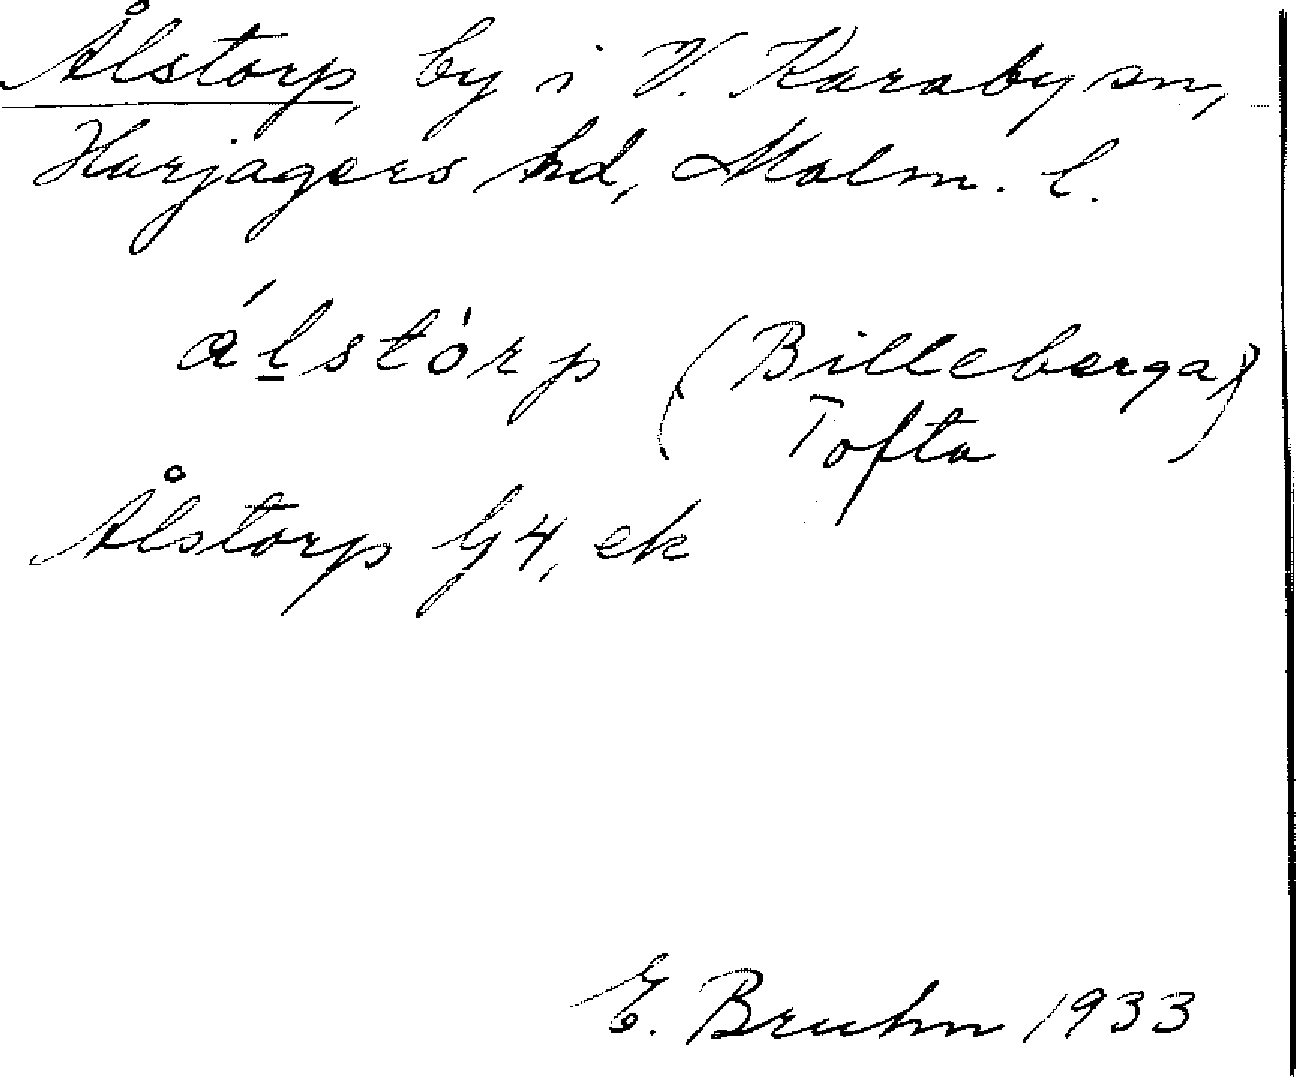 Ålstorp, by i V. Karaby sn,
Harjagers hd, Malm. l.
ál̲stòrp (Billeberga)
Tofta
Ålstorp G4, ek
E. Bruhn 1933